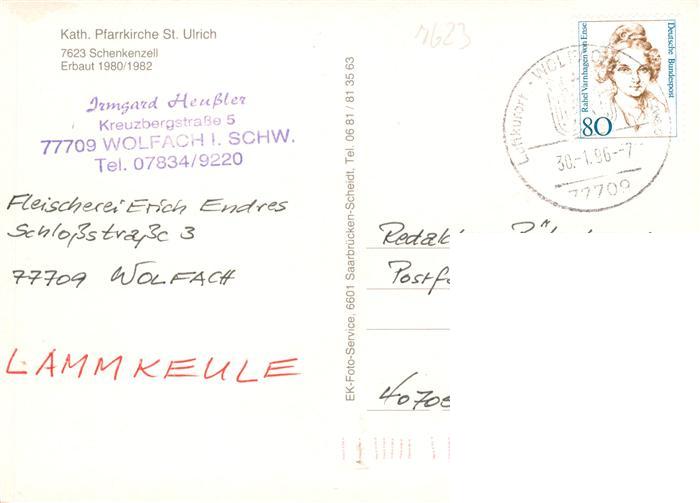 Kath. Pfarrkirche St. Ulrich
7623 Schenkenzell
Erbaut 1980/1982
Irmgard Heußler
Kreuzbergstraße 5
77709 WOLFACH I. SCHW.
Tel. 07834/9220
Fleischerei Erich Endres
Schloßstraße 3
77709 WOLFACH
LAMMKEULE
EK-Foto-Service, 6601 Saarbrücken-Scheidt, Tel. 06 81 / 81 35 63
7623
Rahel Varnhagen von Ense
Deutsche Bundespost
80
Luftkurort
30.-1.96.--7
77709